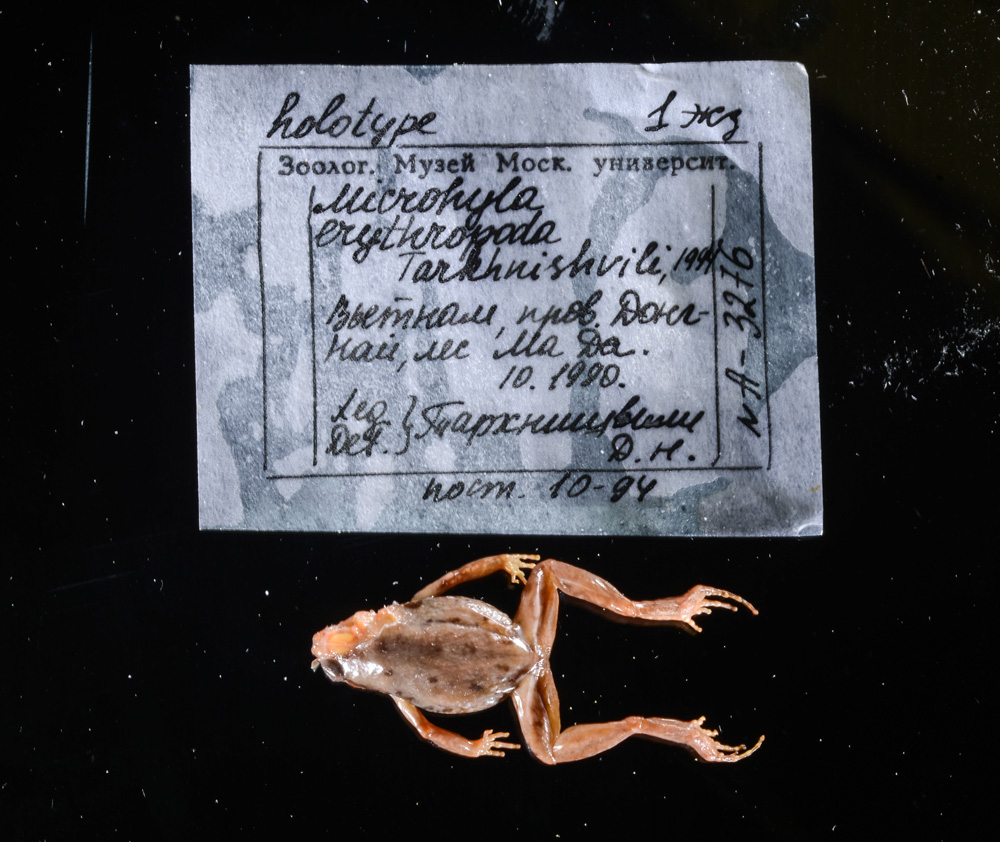 holotype 1 экз
Зоолог. Музей Моск. университ.
Microhyla
erythropoda
Tarkhnishvili, 1994
Вьетнам, пров. Донг-
най, лес Ма Да.
10. 1990.
Leg. } Тархнишвили
Det. } Д. Н.
пост. 10-94
NA-3276